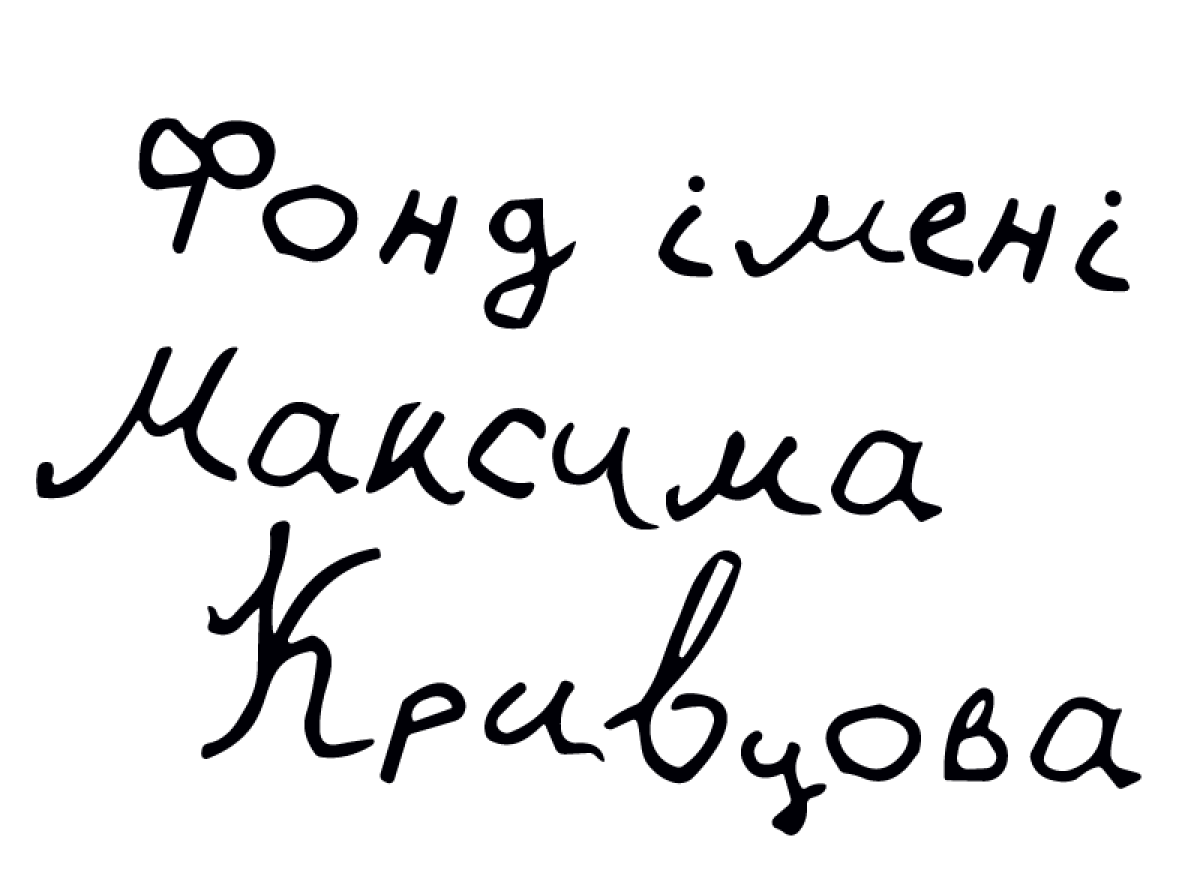 Фонд імені
Максима
Кривцова